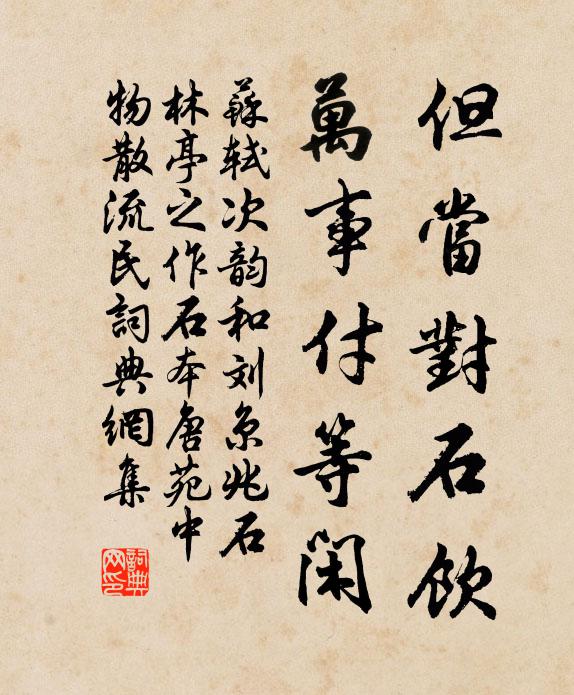 但當對石飲
萬事付等閑
蘇軾次韵和刘京兆石
林亭之作石本唐苑中
物散流民詞典網集
詞典网印